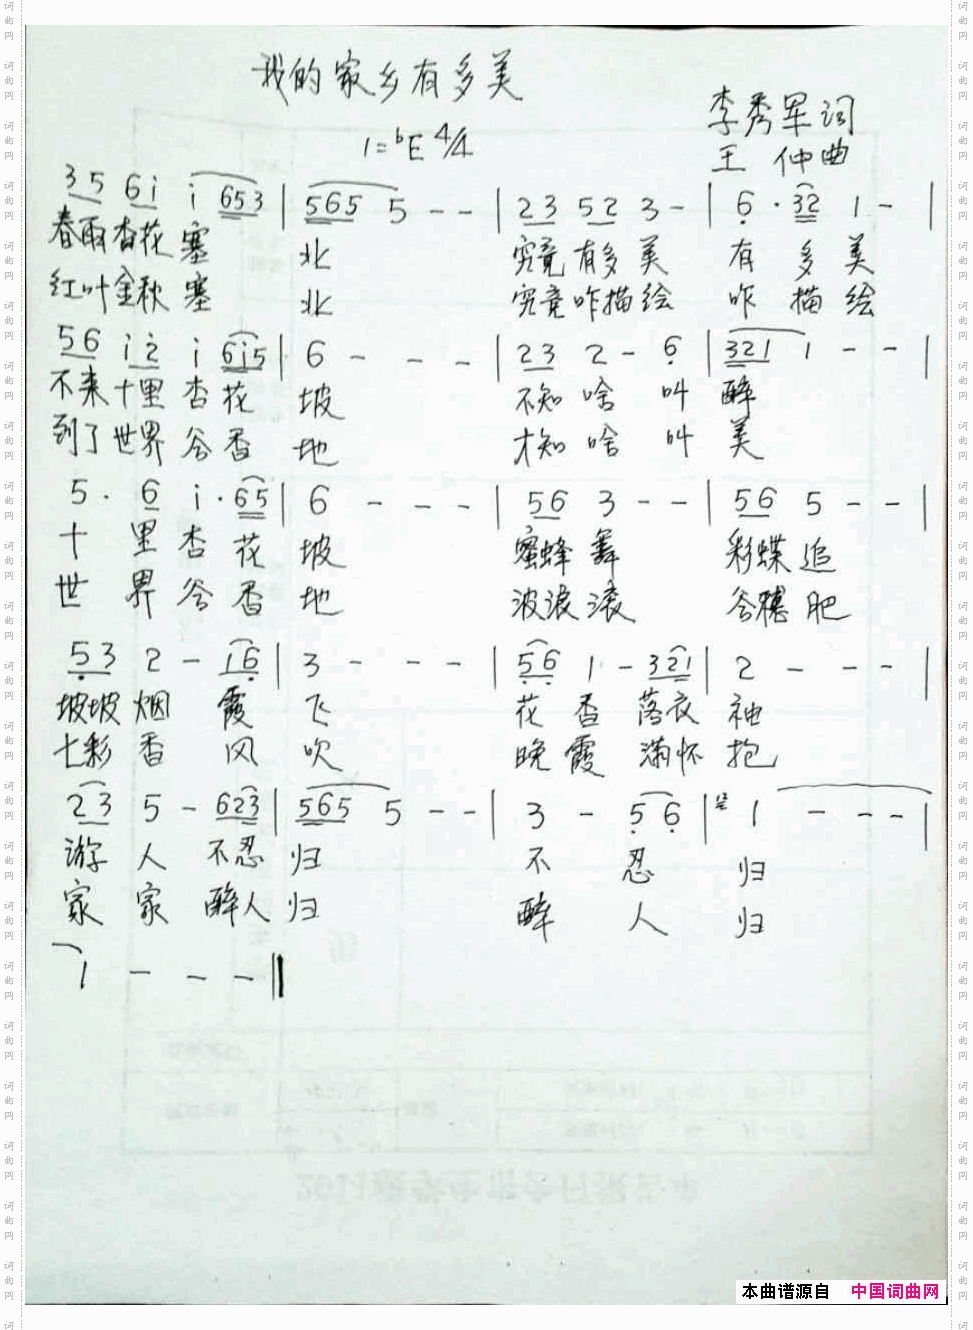 我的家乡有多美
李秀军词
1=ᵇE 4/4
王 仲曲
35 6i i 653 | 565 5 - - | 23 52 3 - | 6 · 32 1 - |
春取杏花 塞 北 究竟 有多 美 有 多 美
红叶金秋 塞 北 究竟 咋描 绘 咋 描 绘
56 i2 i 6i5 6 - - - | 23 2 - 6 | 321 1 - - |
不来十里 杏 花 坡 不知 啥 叫 醉
到了世界 谷 香 地 才知 啥 叫 美
5 · 6 i · 65 | 6 - - - | 56 3 - - | 56 5 - - |
十 里 杏 花 坡 蜜蜂 舞 彩蝶 追
世 界 谷 香 地 波浪 滚 谷穗 肥
53 2 - 16 | 3 - - - | 56 1 - 321 | 2 - - - |
坡坡 烟 霞 飞 花 香 落衣 袖
七彩 香 风 吹 晚 霞 满怀 抱
23 5 - 623 | 565 5 - - | 3 - 5 6 | 1 - - - |
游子 人 不忍 归 不 忍 归
家 家 醉人 归 醉 人 归
1 - - - ‖
本曲谱源自 中国词曲网